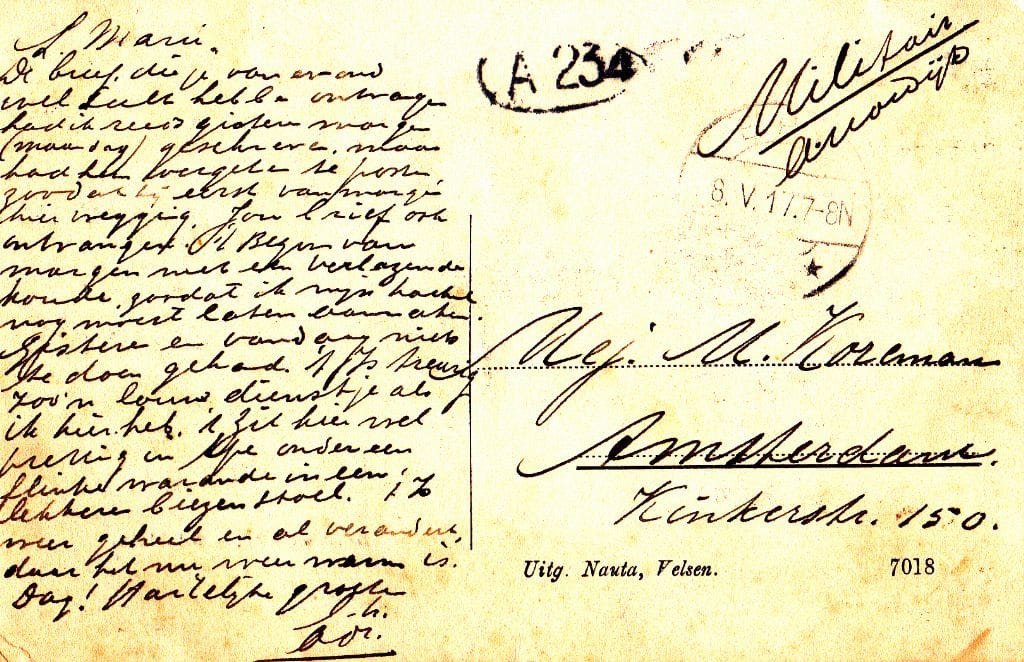 L. Marie,
De brief, die je van avond
wel zult hebben ontvangen
had ik reeds gisteren morgen
(maandag) geschreven, maar
had hem vergeten te posten
zoodat hij eerst van morgen
hier wegging. Jou brief ook
ontvangen. 't Begon van
morgen met een
koude, zoodat ik mijn kachel
nog moest laten aanmaken.
Gisteren en vandaag niets
te doen gehad. 't Is treurig
zoo'n louw dienstje als
ik hier heb. 'k Zit hier wel
prettig in onder een
flinke warande in een
lekkere biezen stoel. 't Is
weer geheel en al veranderd,
daar het nu weer warm is.
Dag! Hartelijke groeten
A 234
Militair
8. V. 17. 7-8N
Mej. M. Koreman
Amsterdam.
Kinkerstr. 150.
Uitg. Nauta, Velsen. 7018